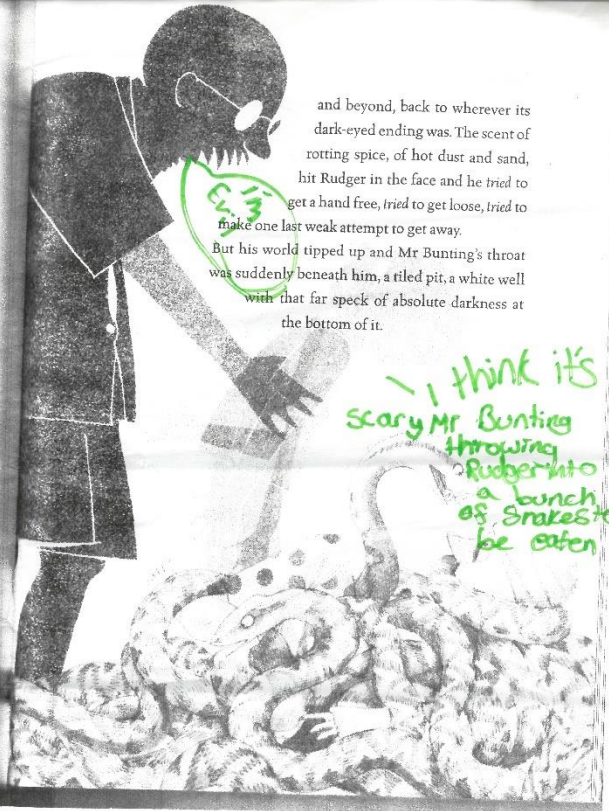 and beyond, back to wherever its
dark-eyed ending was. The scent of
rotting spice, of hot dust and sand,
hit Rudger in the face and he tried to
get a hand free, tried to get loose, tried to
make one last weak attempt to get away.
But his world tipped up and Mr Bunting's throat
was suddenly beneath him, a tiled pit, a white well
with that far speck of absolute darkness at
the bottom of it.
Evil
I think it's
scary Mr Bunting
throwing
Rudger into
a bunch
of snakes to
be eaten